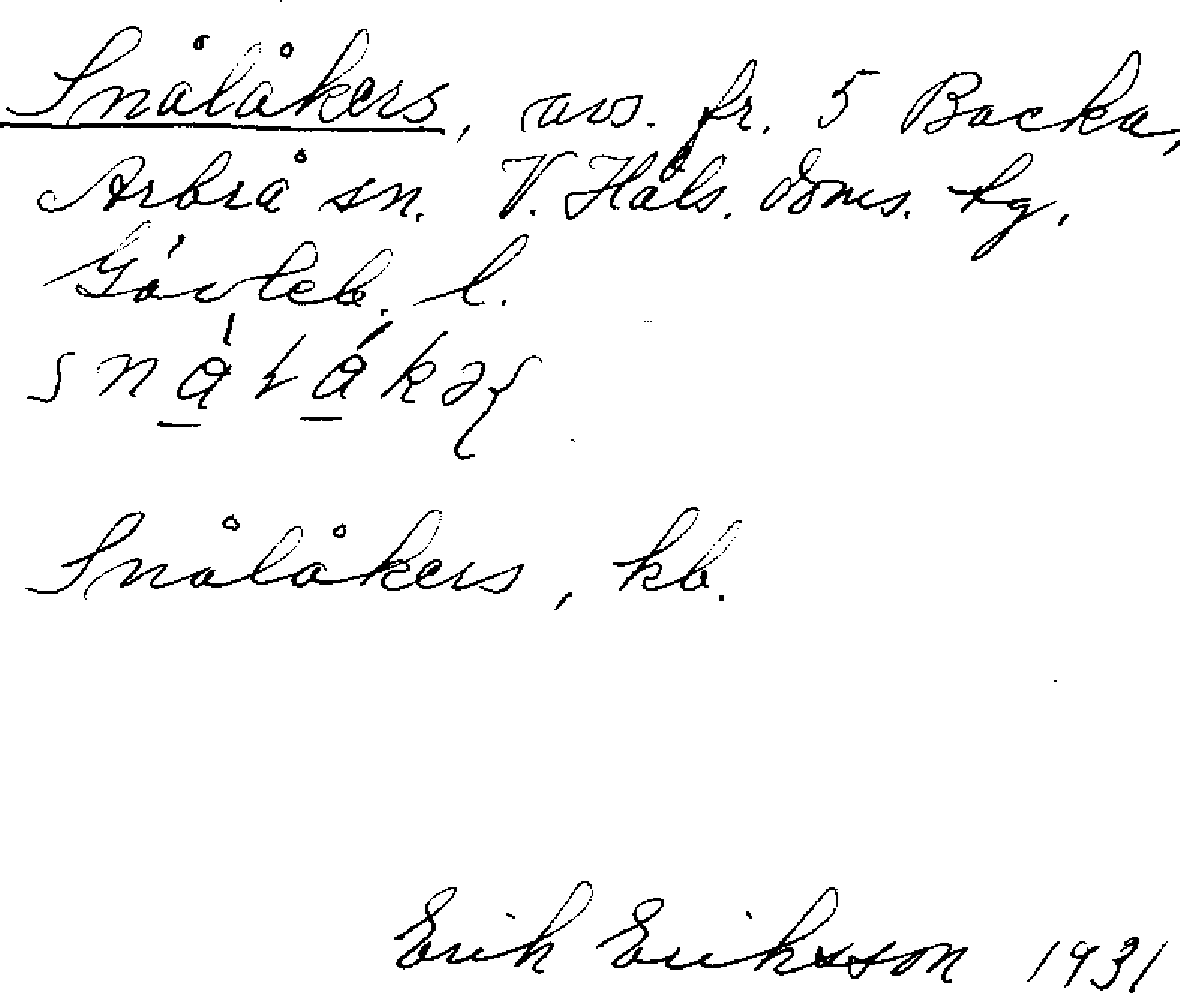 Snålåkers, avs. fr. 5 Backa,
Arbrå sn. V. Häls. doms. tg,
Gävleb. l.
Snålåkers, kb.
Erik Eriksson 1931